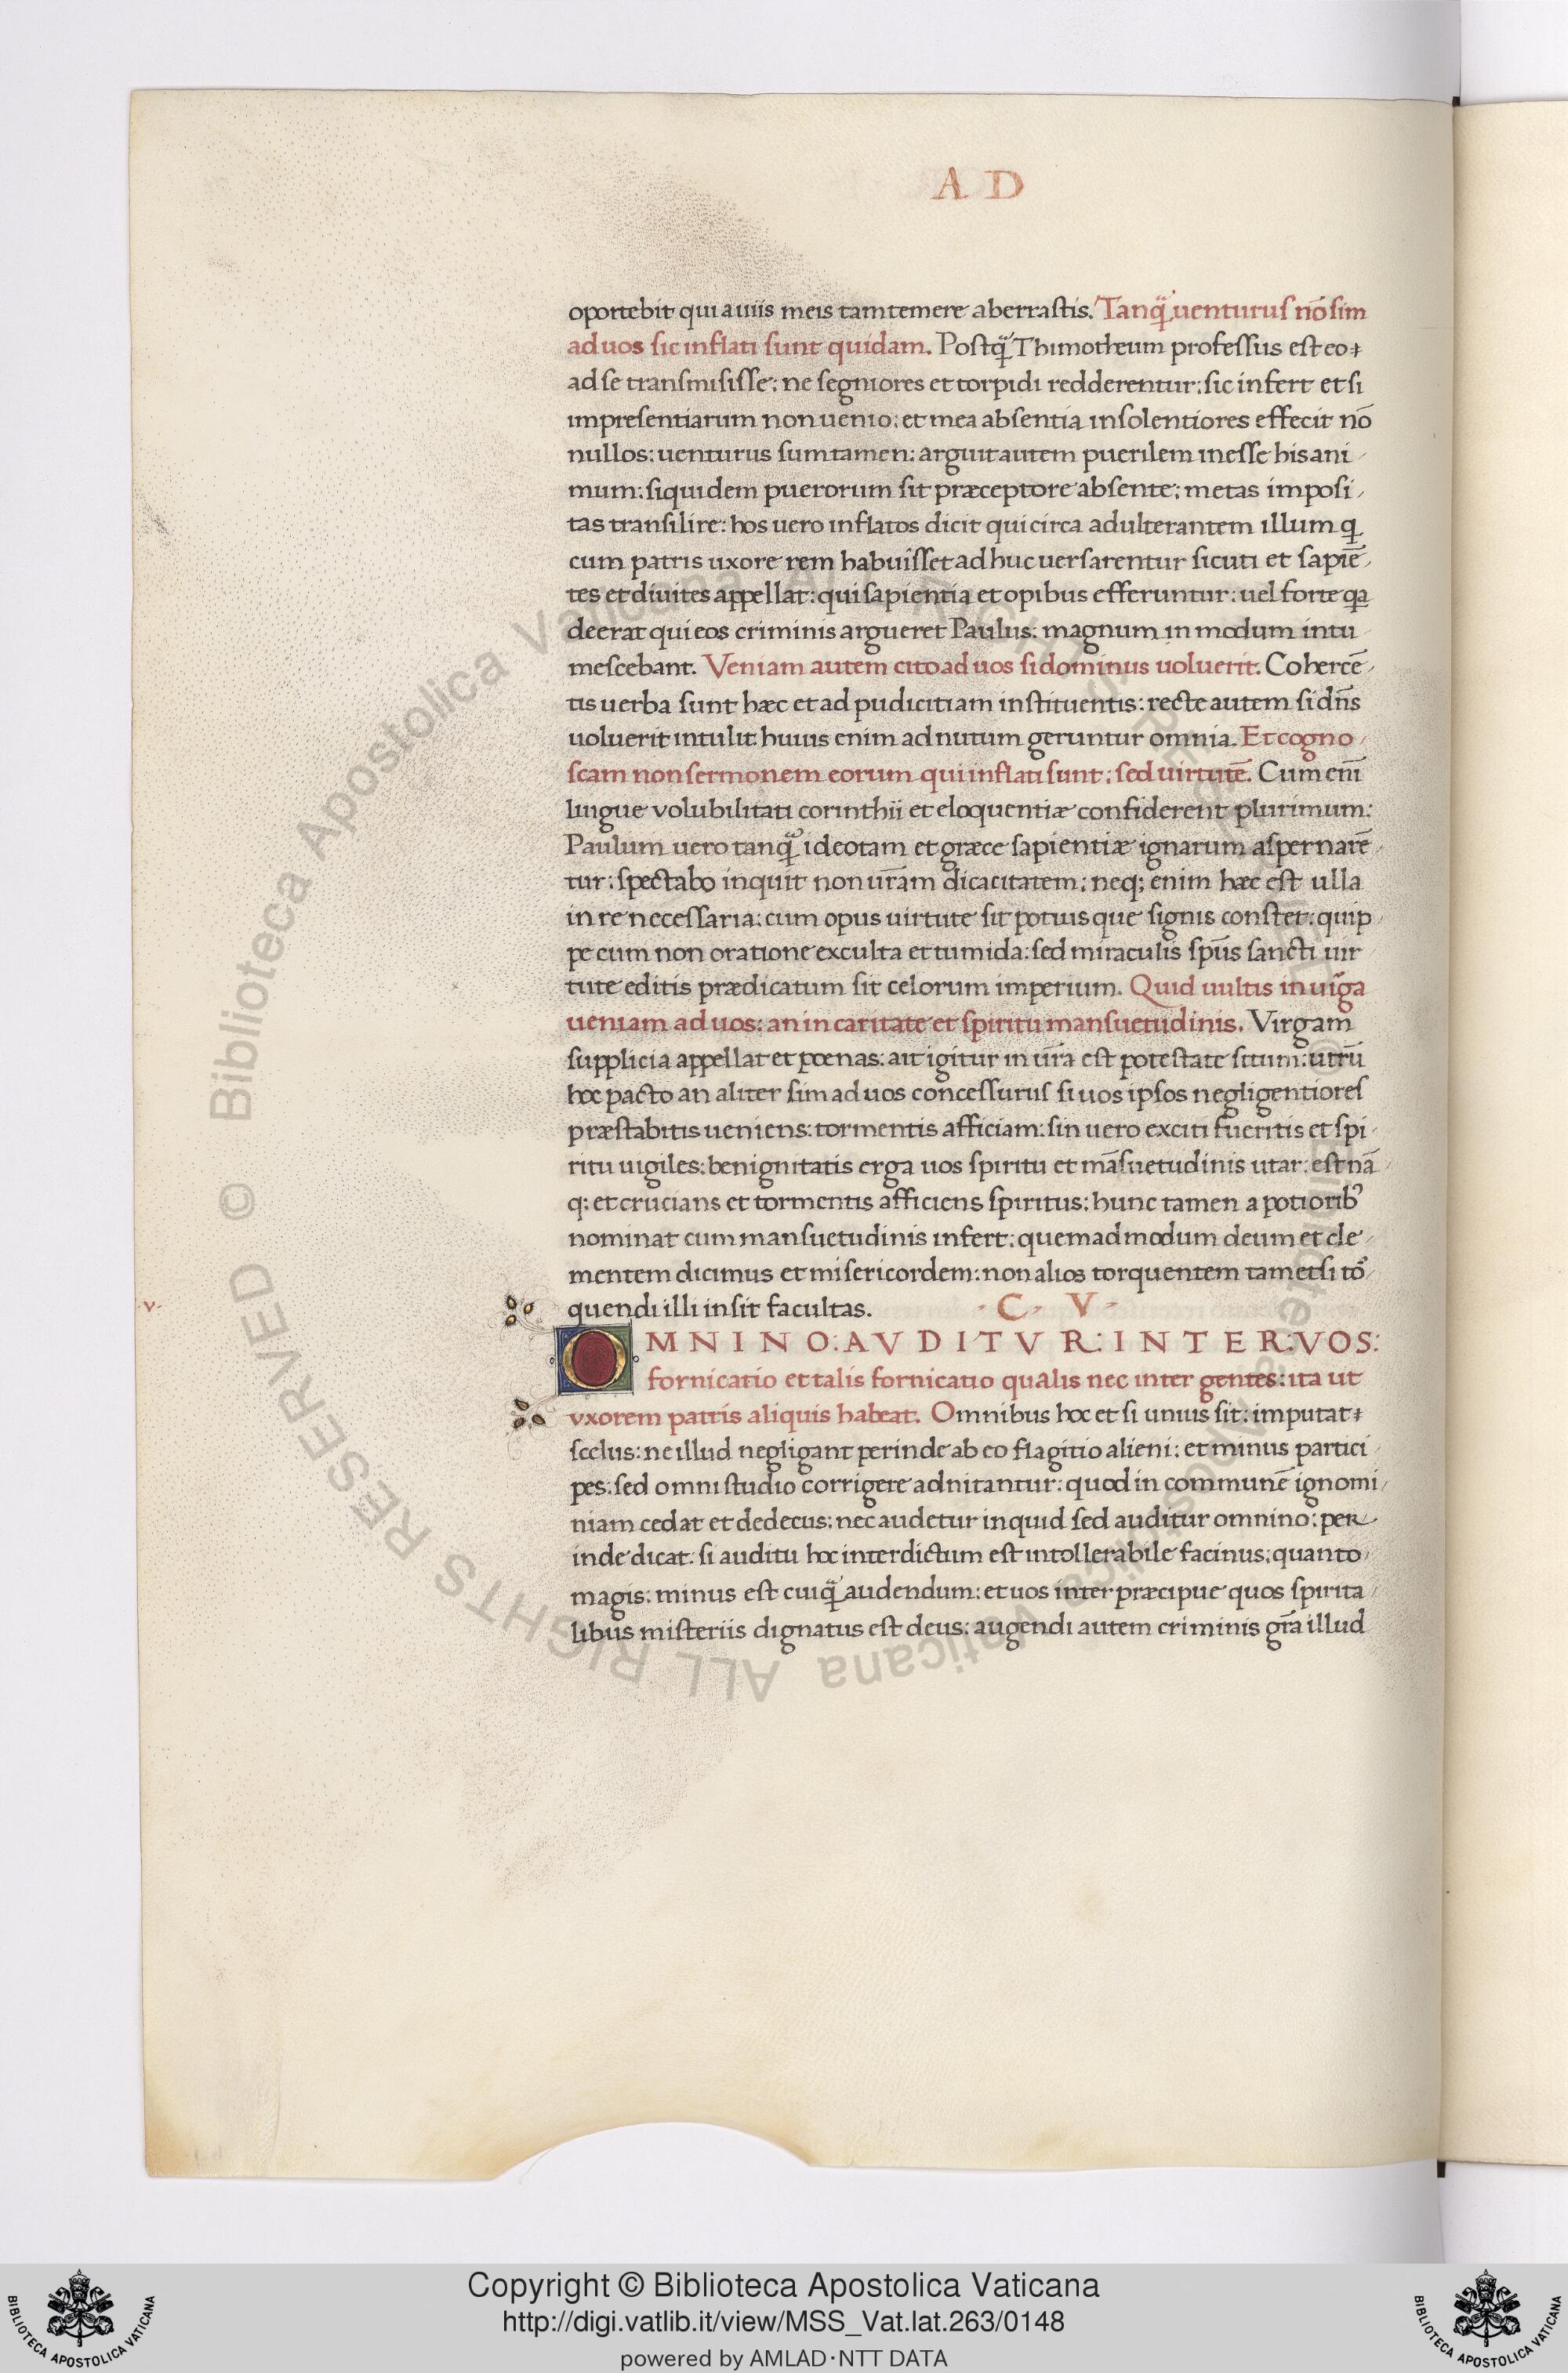 A D
oportebit qui a uiis meis tam temere aberrastis. Tanq̃ uenturus nō sim
ad uos sic inflati sunt quidam. Postq̃ Thimotheum professus est eoꝝ
ad se transmisisse: ne segniores et torpidi redderentur: sic infert et si
impresentiarum non uenio: et mea absentia insolentiores effecit nō
nullos: uenturus sum tamen: arguit autem puerilem inesse his ani
mum: siquidem puerorum sit præceptore absente: metas imposi
tas transilire: hos uero inflatos dicit qui circa adulterantem illum q
cum patris uxore rem habuisset adhuc uersarentur sicuti et sapiē
tes et diuites appellat: qui sapientia et opibus efferuntur: uel forte qa
deerat qui eos criminis argueret Paulus: magnum in modum intu
mescebant. Veniam autem cito ad uos si dominus uoluerit. Cohercē
tis uerba sunt hæc et ad pudicitiam instituentis: recte autem si dn̄s
uoluerit intulit huius enim ad nutum geruntur omnia. Et cogno
scam non sermonem eorum qui inflati sunt: sed uirtutē. Cum eni̅
lingue volubilitati corinthii et eloquentiæ confiderent plurimum:
Paulum uero tanq̃ ideotam et græce sapientiæ ignarum aspernarē
tur: spectabo inquit non ur̄am dicacitatem: neq; enim hæc est ulla
in re necessaria: cum opus uirtute sit potius que signis constet: quip
pe cum non oratione exculta et tumida: sed miraculis sp̄us sancti uir
tute editis prædicatum sit celorum imperium. Quid uultis in uīga
ueniam ad uos: an in caritate et spiritu mansuetudinis. Virgam
supplicia appellat et pœnas: ait igitur in ur̄a est potestate situm: utrū
hoc pacto an aliter sim ad uos concessurus si uos ipsos negligentiores
præstabitis ueniens: tormentis afficiam: sin uero exciti fueritis et spi
ritu uigiles: benignitatis erga uos spiritu et māsuetudinis utar: est nā
q; et crucians et tormentis afficiens spiritus: hunc tamen a potiorib᾿
nominat cum mansuetudinis infert: quemadmodum deum et cle
mentem dicimus et misericordem: non alios torquentem tametsi tō
quendi illi insit facultas. · C · V ·
·v·
OMNINO: AVDITVR: INTER: VOS:
fornicatio et talis fornicatio qualis nec inter gentes: ita ut
vxorem patris aliquis habeat. Omnibus hoc et si unius sit: imputatꝝ
scelus: ne illud negligant perinde ab eo flagitio alieni: et minus partici
pes: sed omni studio corrigere adnitantur: quod in communē ignomi
niam cedat et dedecus: nec audetur inquid sed auditur omnino: per
inde dicat. si auditu hoc interdictum est intollerabile facinus: quanto
magis: minus est cuiq̃ audendum: et uos inter præcipue quos spirita
libus misteriis dignatus est deus: augendi autem criminis gr̄a illud
© Biblioteca Apostolica Vaticana ALL RIGHTS RESERVED
Copyright © Biblioteca Apostolica Vaticana
http://digi.vatlib.it/view/MSS_Vat.lat.263/0148
powered by AMLAD·NTT DATA
BIBLIOTECA APOSTOLICA VATICANA
BIBLIOTECA APOSTOLICA VATICANA